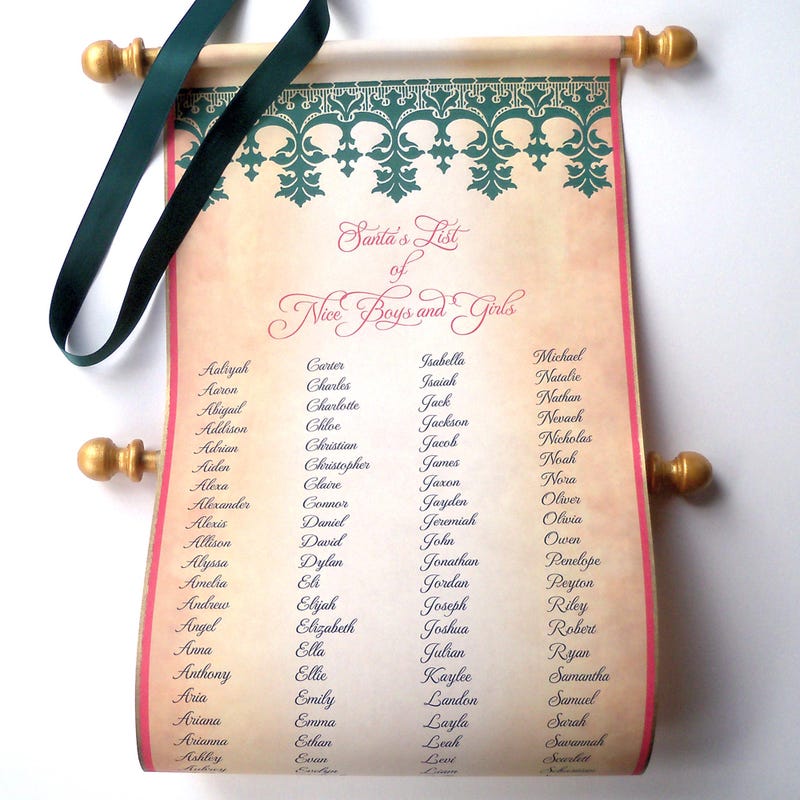 Santa's List
of
Nice Boys and Girls
Aaliyah
Aaron
Abigail
Addison
Adrian
Aiden
Alexa
Alexander
Alexis
Allison
Alyssa
Amelia
Andrew
Angel
Anna
Anthony
Aria
Ariana
Arianna
Ashley
Aubrey
Carter
Charles
Charlotte
Chloe
Christian
Christopher
Claire
Connor
Daniel
David
Dylan
Eli
Elijah
Elizabeth
Ella
Ellie
Emily
Emma
Ethan
Evan
Evelyn
Isabella
Isaiah
Jack
Jackson
Jacob
James
Jaxon
Jayden
Jeremiah
John
Jonathan
Jordan
Joseph
Joshua
Julian
Kaylee
Landon
Layla
Leah
Levi
Liam
Michael
Natalie
Nathan
Nevaeh
Nicholas
Noah
Nora
Oliver
Olivia
Owen
Penelope
Peyton
Riley
Robert
Ryan
Samantha
Samuel
Sarah
Savannah
Scarlett